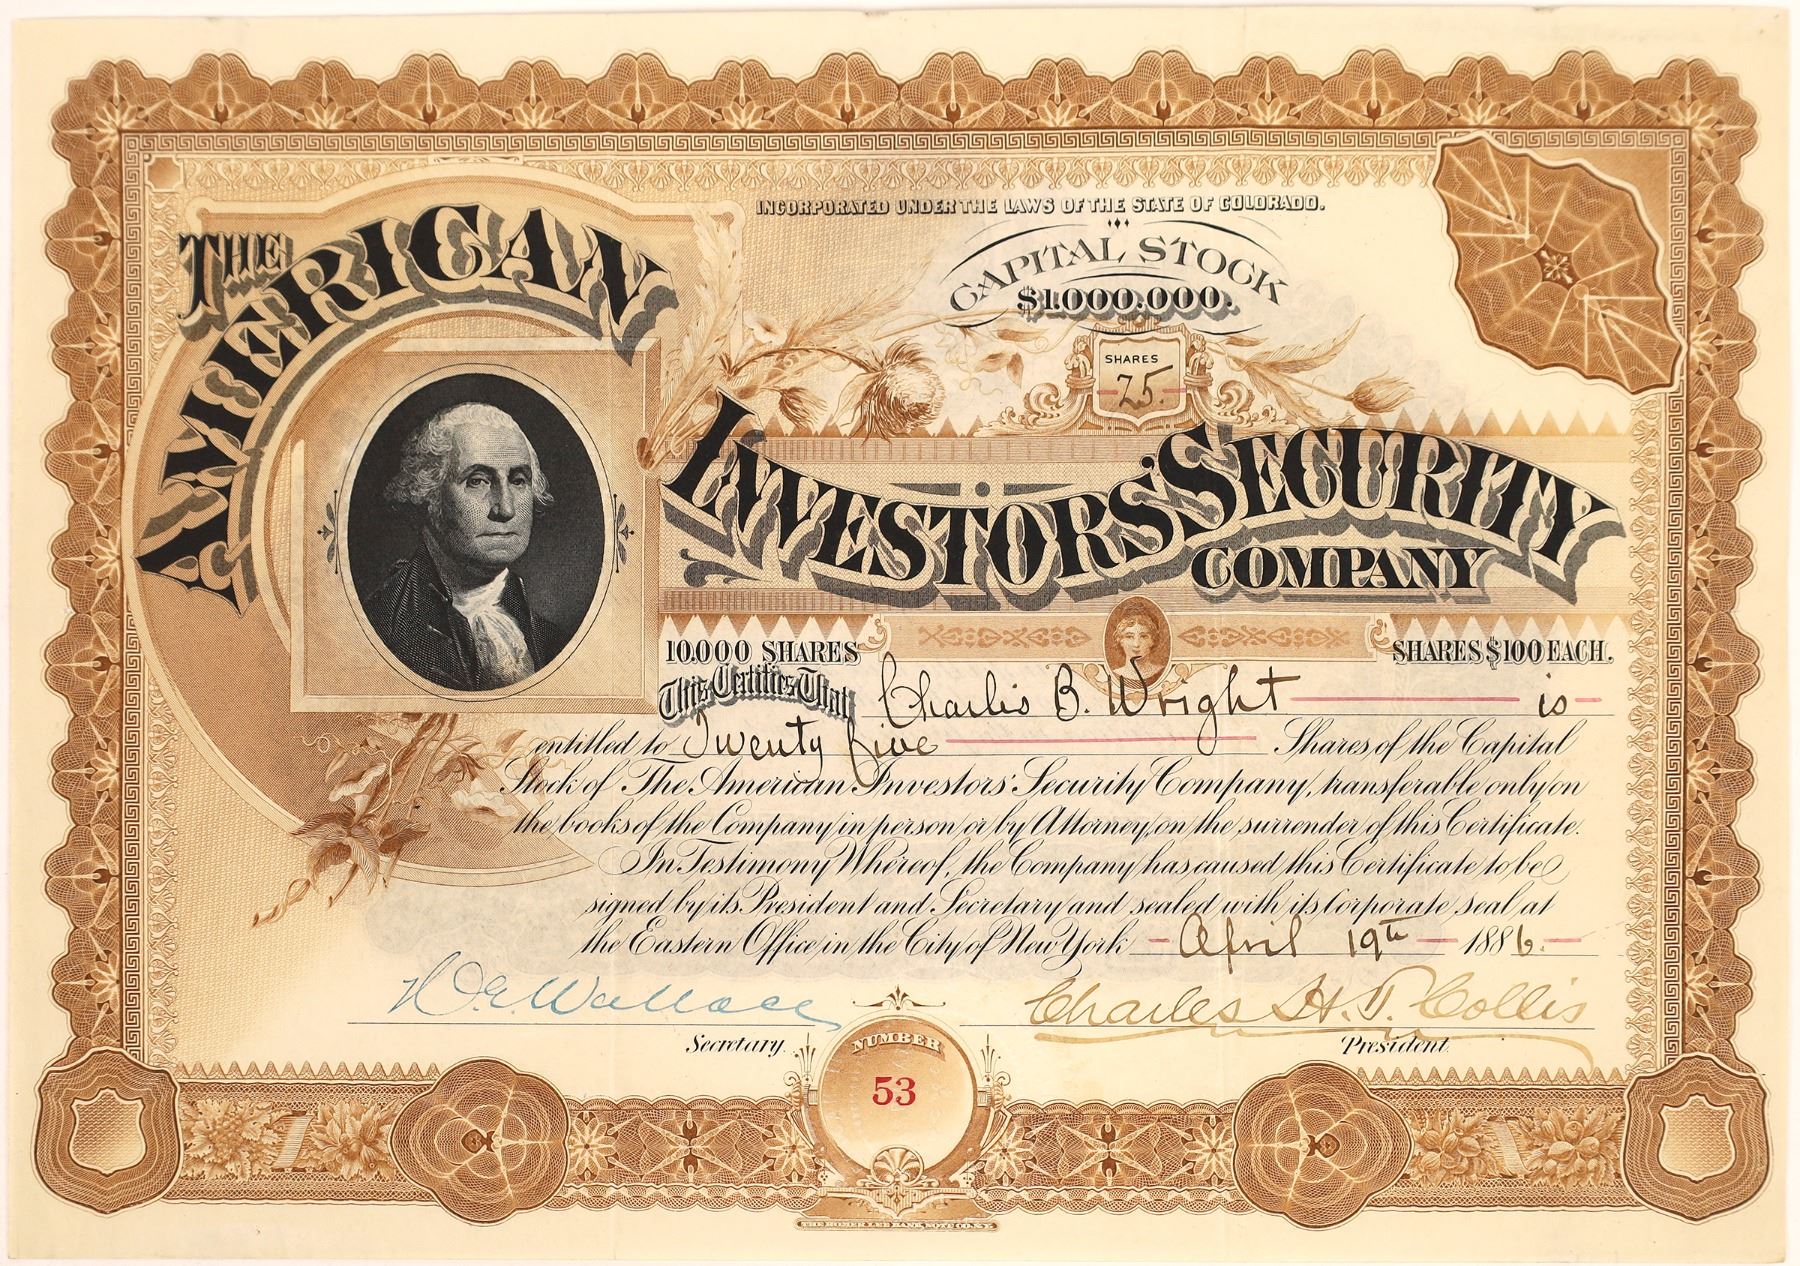 INCORPORATED UNDER THE LAWS OF THE STATE OF COLORADO.
CAPITAL STOCK
$1.000.000.
SHARES
25.
THE AMERICAN
INVESTORS' SECURITY
COMPANY
10.000 SHARES
SHARES $100 EACH.
This Certifies That Charles B. Wright is
entitled to Twenty five Shares of the Capital
Stock of The American Investors' Security Company, transferable only on
the books of the Company in person or by Attorney, on the surrender of this Certificate.
In Testimony Whereof, the Company has caused this Certificate to be
signed by its President and Secretary and sealed with its Corporate seal at
the Eastern Office in the City of New York April 19th 1886.
Wallace
Charles H. T. Collis
Secretary.
President.
NUMBER
53
THE HOMER LEE BANK NOTE CO. N.Y.